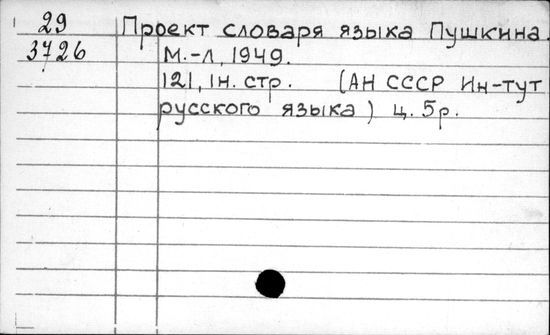 29
3726
Проект словаря языка Пушкина.
М.-Л, 1949.
121, 1н. стр. (АН СССР Ин-тут
русского языка) ц. 5р.